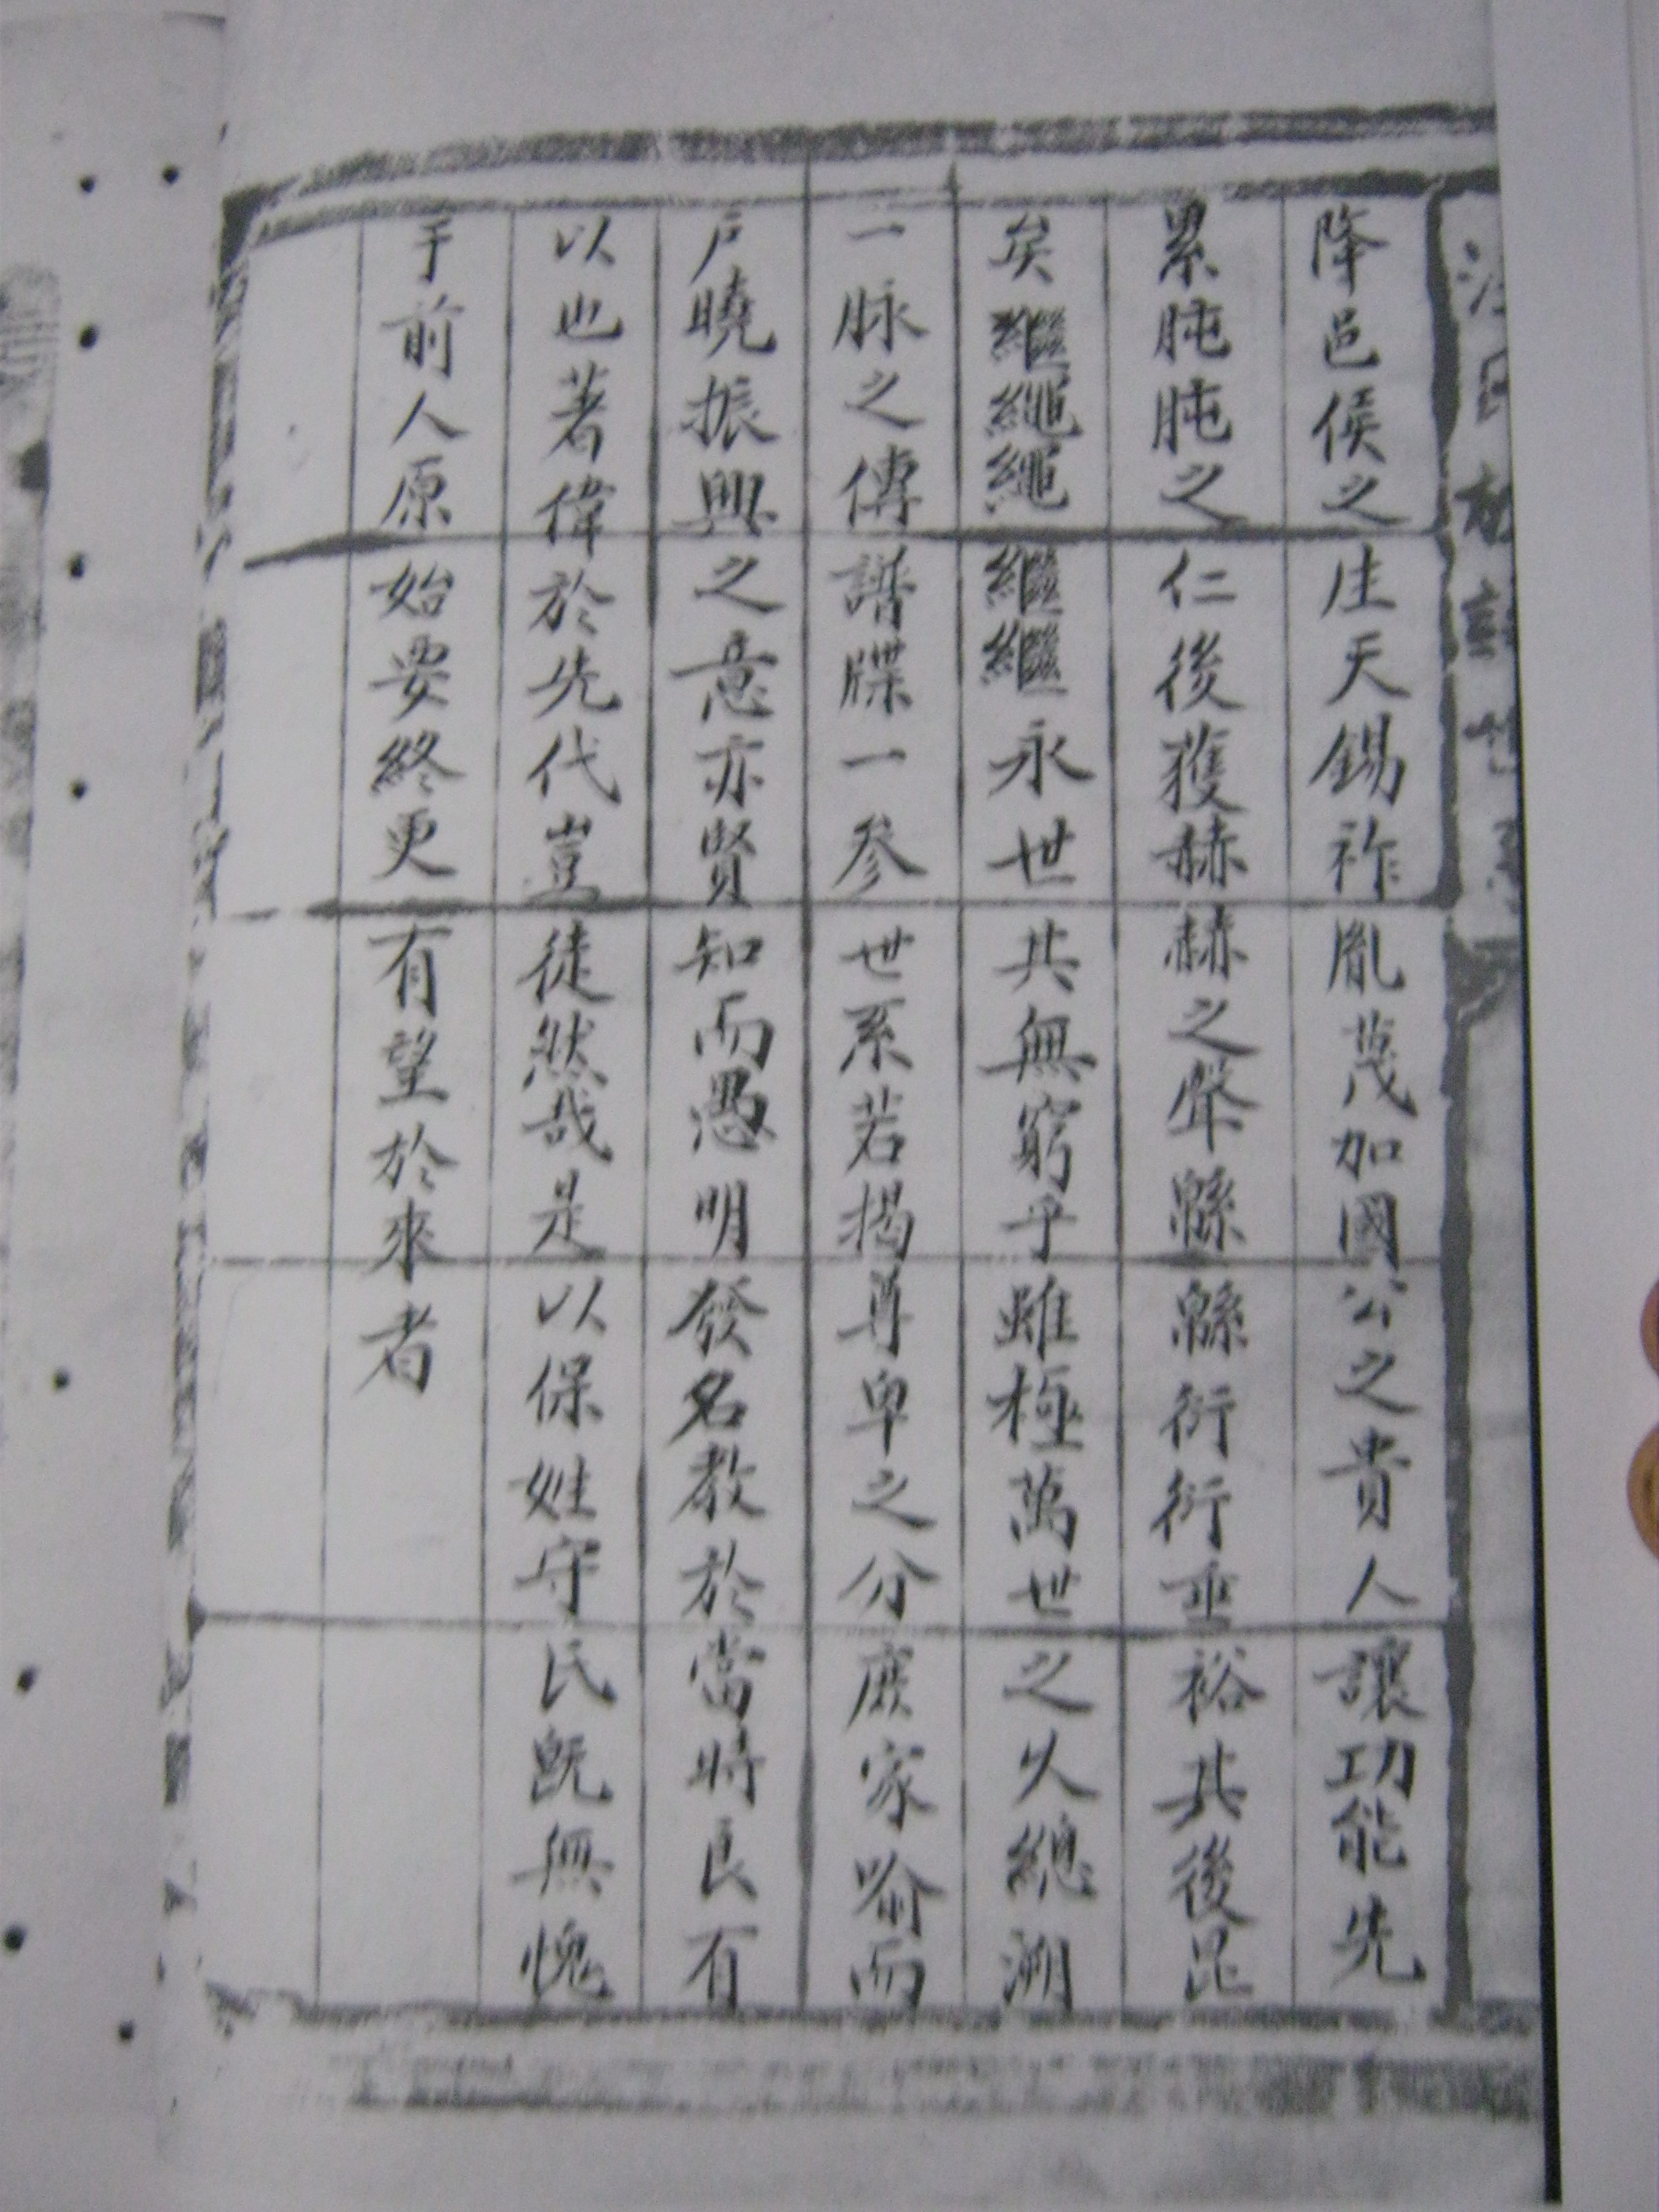 降邑侯之生天錫祚胤茂加國公之貴人讓功能先
累肫肫之仁後獲赫赫之聲緜緜衍衍垂裕其後昆
矣繼繩繩繼繼永世共無窮乎雖極萬世之久總溯
一脉之傳譜牒一參世系若揭尊卑之分庶家喻而
戶曉振興之意亦賢知而愚明發名教於當時良有
以也著偉於先代豈徒然哉是以保姓守氏既無愧
于前人原始要終更有望於來者